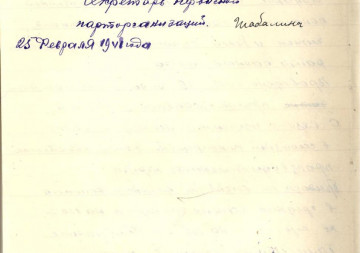 Секретарь первичной
парторганизаций. Шабалина
25 Февраля года